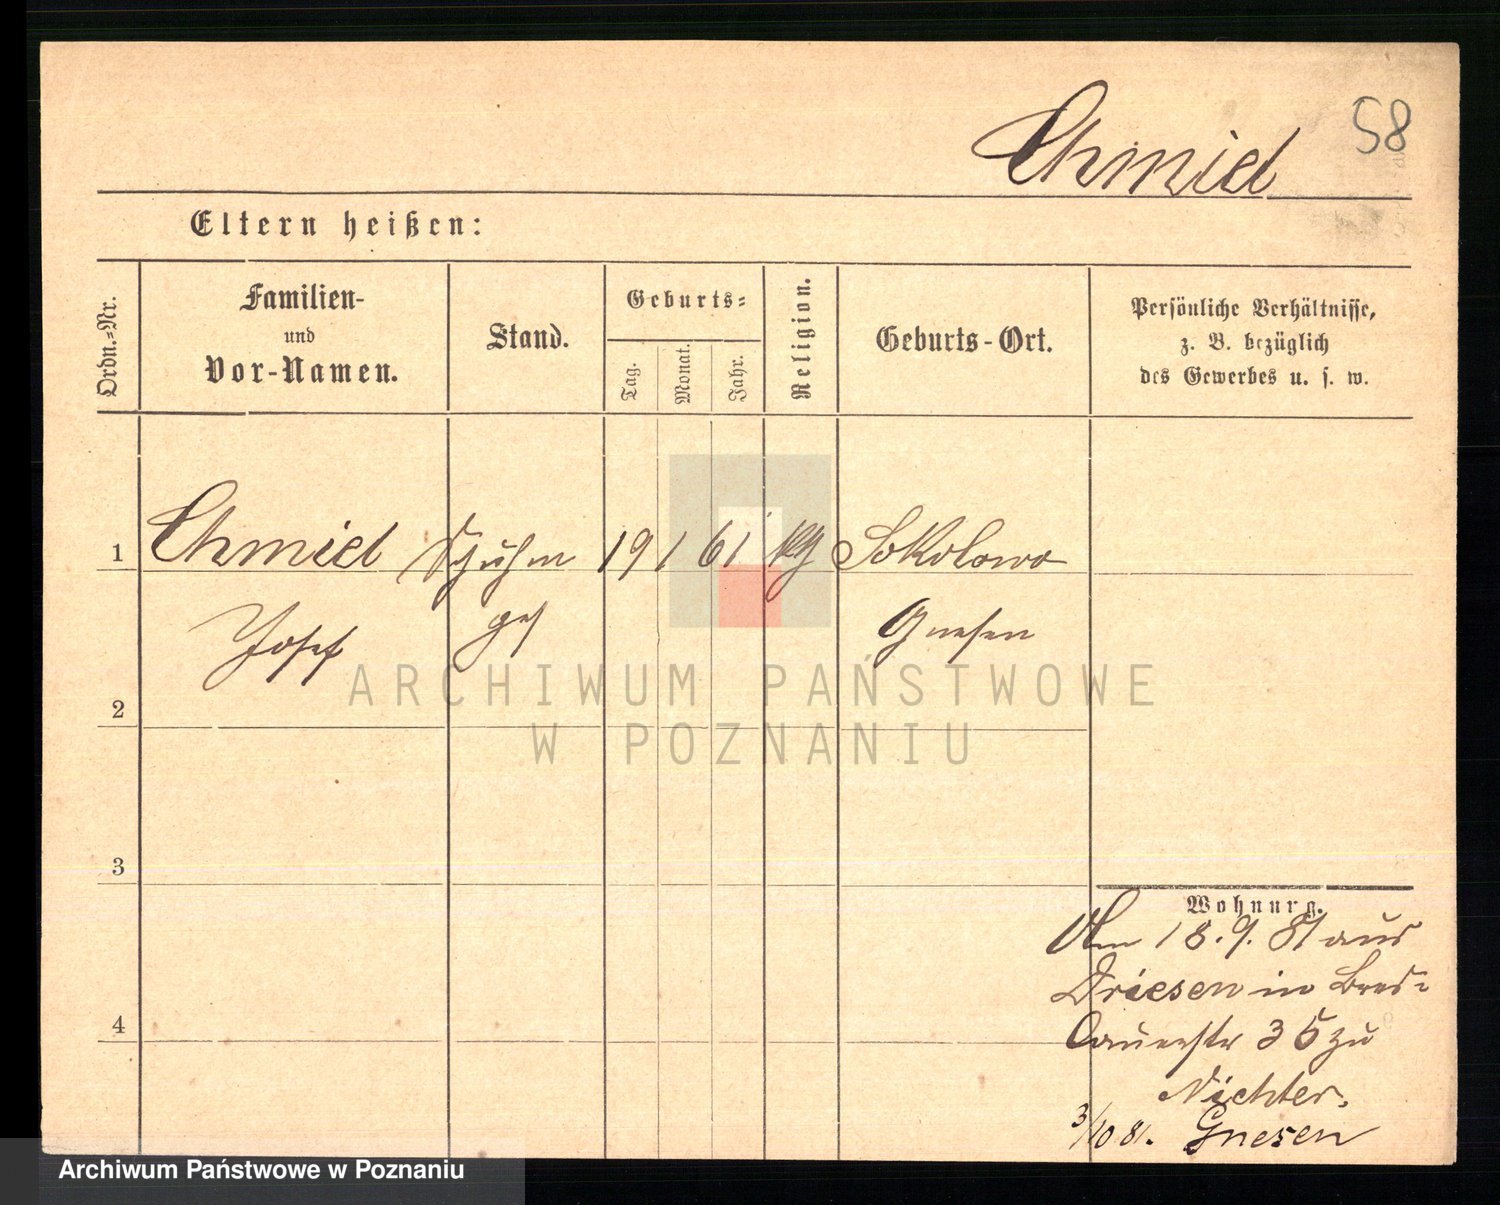 58
Chmiel
Eltern heißen:
Ordn.=Nr.
Familien-
und
Vor-Namen.
Stand.
Geburts=
Tag.
Monat.
Jahr.
Religion.
Geburts-Ort.
Persönliche Verhältnisse,
z. B. bezüglich
des Gewerbes u. s. w.
1 Chmiel Schuhm 19 1 61 kg Sokolowo
Josef ges Gnesen
2
3
4
Wohnung.
Am 18. 9. 81 aus
Driesen in Bres=
lauerstr 35 zu
Richter.
3/10 81. Gnesen
ARCHIWUM PAŃSTWOWE
W POZNANIU
Archiwum Państwowe w Poznaniu